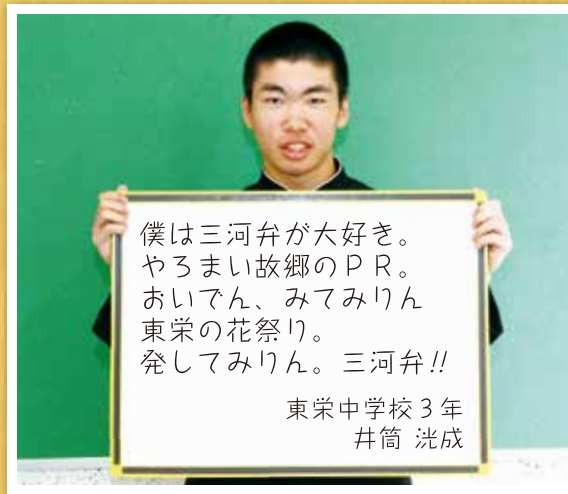 僕は三河弁が大好き。
やろまい故郷のＰＲ。
おいでん、みてみりん
東栄の花祭り。
発してみりん。三河弁!!
東栄中学校３年
井筒 洸成